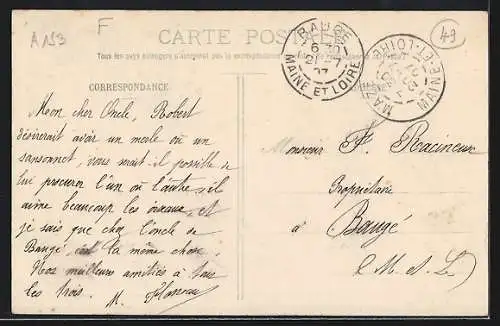 A N93
F
49
CARTE POSTALE
Tous les pays étrangers n'acceptent pas la correspondance
BAUGÉ
6
21
07
MAINE ET LOIRE
MAZ
MAINE-ET-LOIRE
CORRESPONDANCE
Mon cher Oncle, Robert
désirerait avoir un merle ou un
sansonnet, vous serait il possible de
lui procurer l'un ou l'autre, il
aime beaucoup les oiseaux, et
je sais que chez l'oncle de
Baugé, est la même chose.
Nos meilleures amitiés à tous
les trois. M.
Monsieur F. Racineux
Propriétaire
à Baugé
(M. et L.)